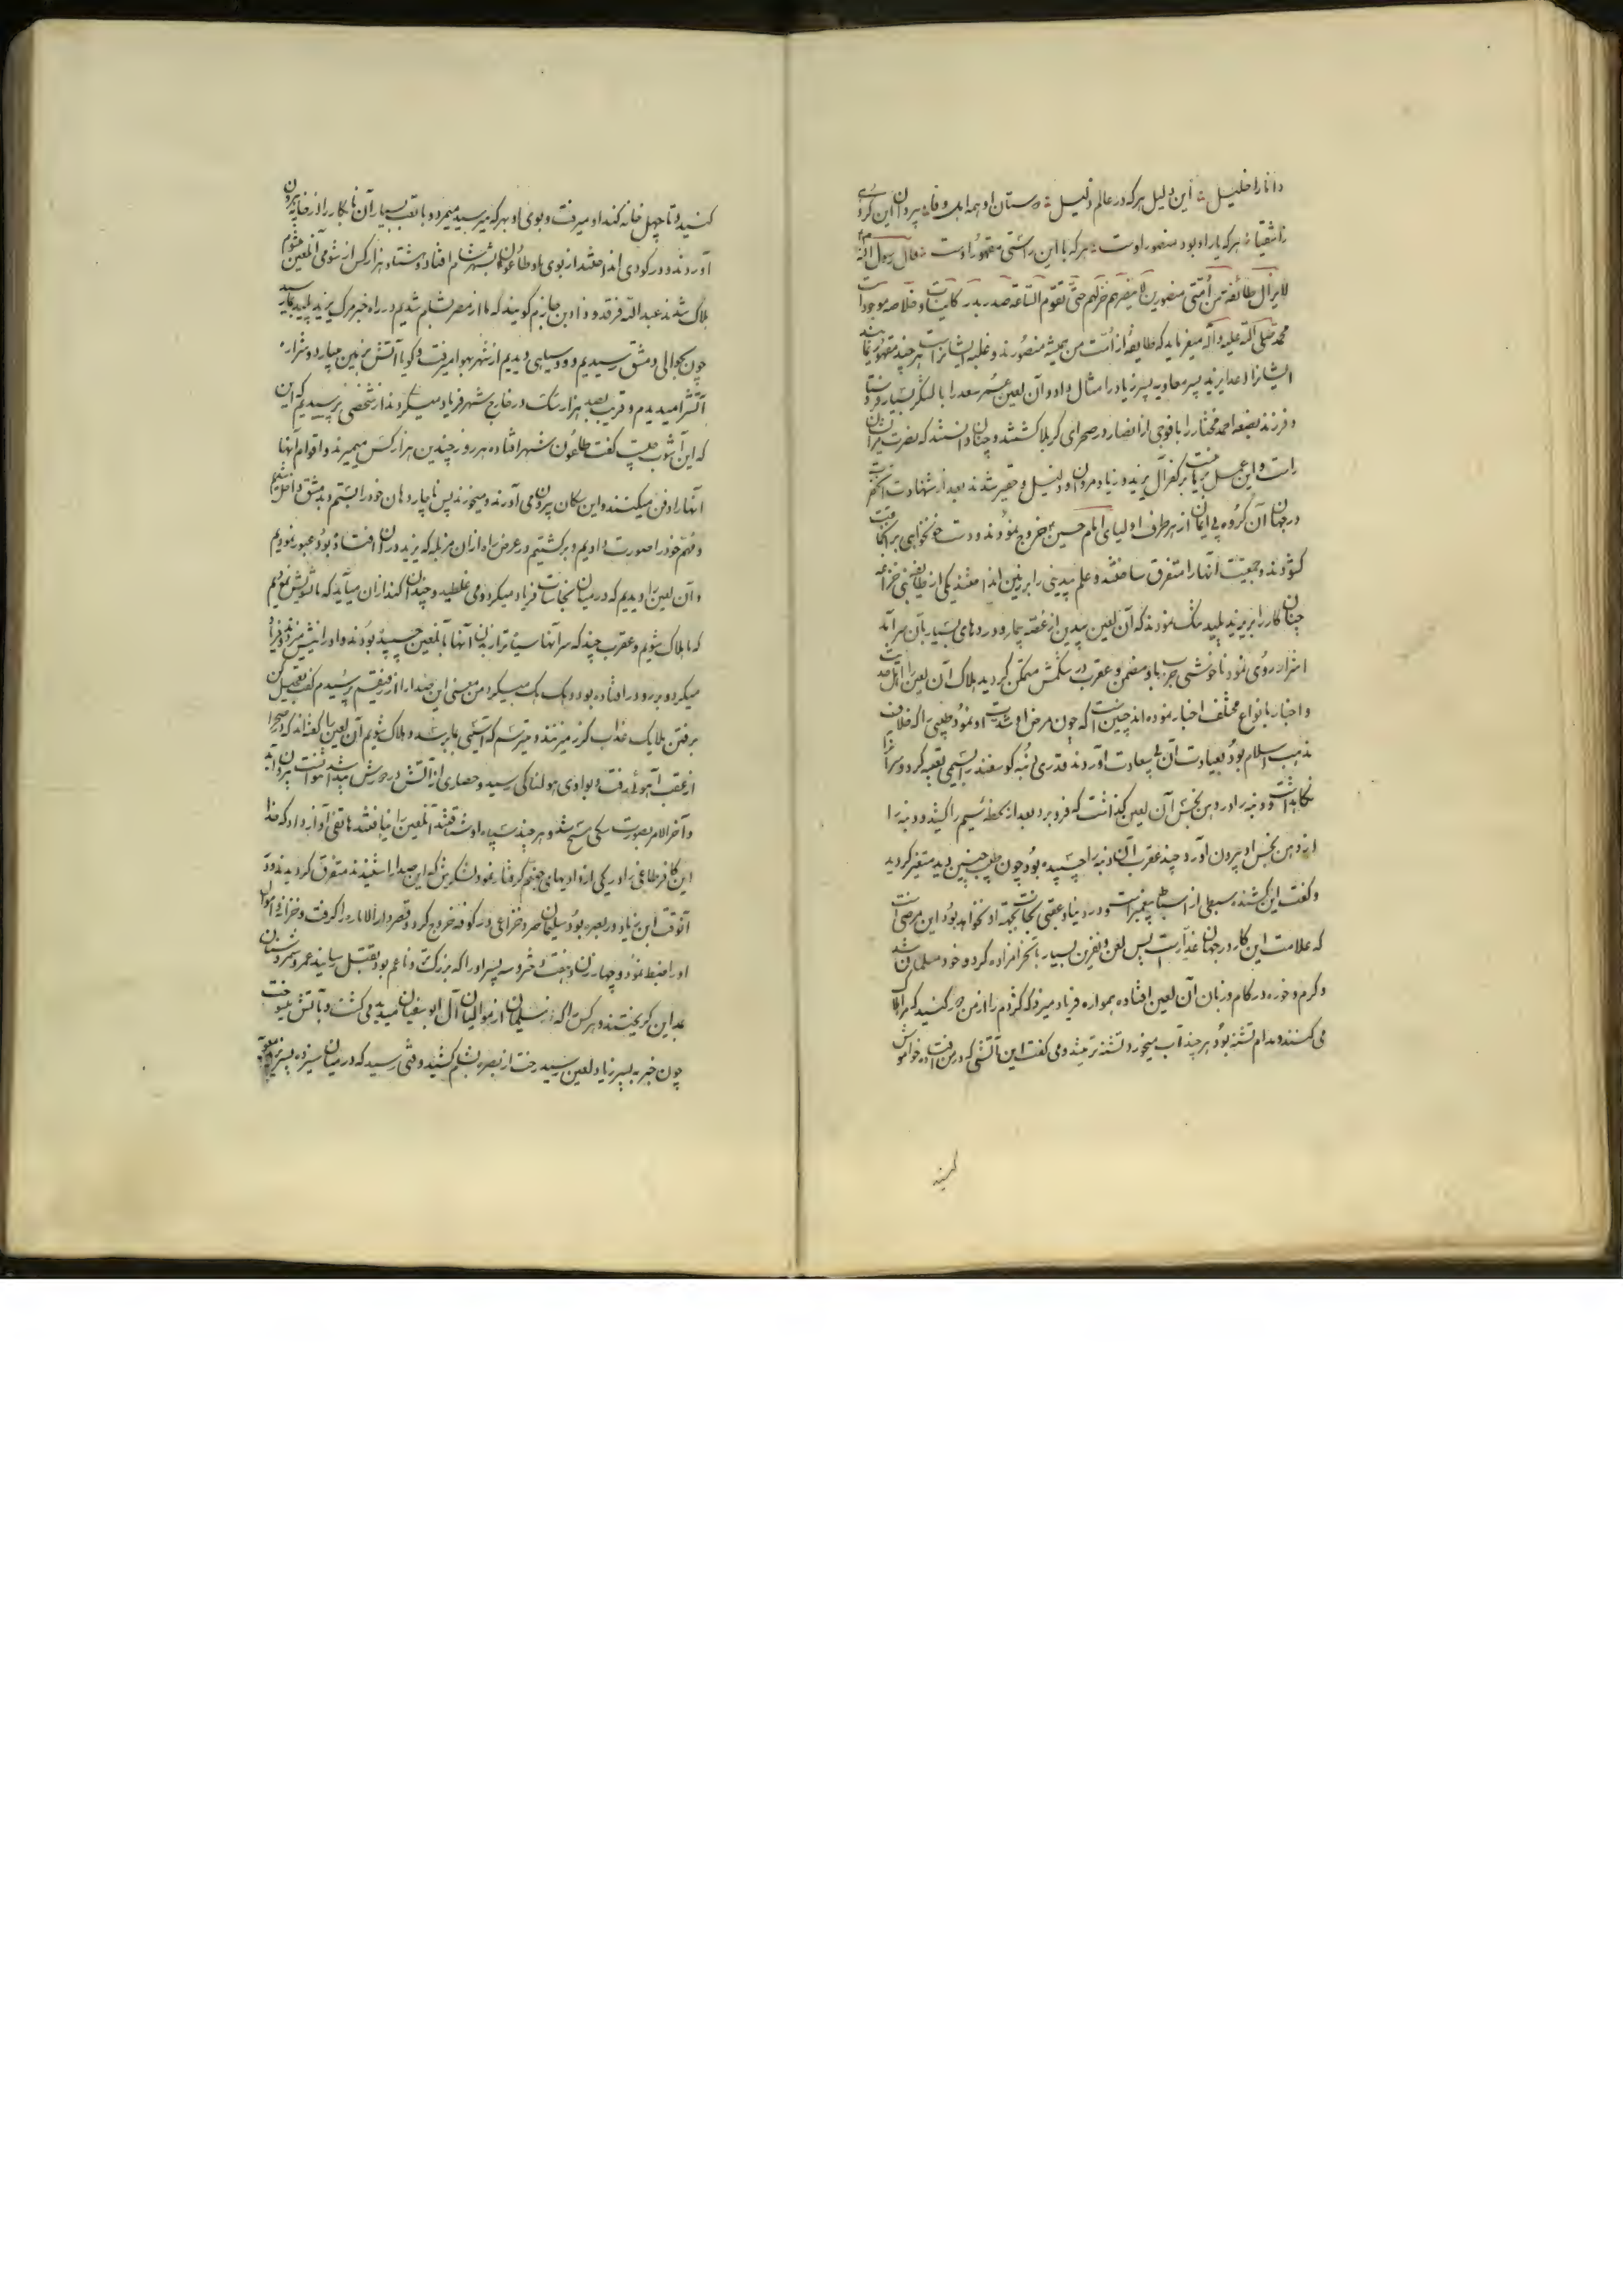 دانا را خلیل این دلیل هر که در عالم ذلیل دوستان او همه اهل وفا پیروان این کرد
ز اشقیا هر که یار او بود منصور اوست هر که با این راستی مقهور اوست قال رسول الله
لایزال طائفة من أمتی منصورین لا یضرهم خزلهم حتی تقوم الساعة صدر بدر کاینات و خلاصه موجودات
محمد صلی الله علیه و آله میفرماید که طایفه از امت من همیشه منصورند و غلبه ایشانراست هر چند مقهور نمایند
ایشانرا اعدا یزید پسر معاویه پسر زیاد را مثال داد و آن لعین عمر سعد را با لشکر بسیار فرستاد
و فرزند بضعه احمد مختار را با فوجی از انصار در صحرای کربلا کشتند و چنان دانستند که نصرت
راست و این عمل بر کفر آل یزید و زیاد و مروان و ذلیل و حقیر شدند بعد از شهادت آنحضرت
در جهان آن گروه بی ایمان از هر طرف اولیای امام حسین خروج نمودند و دست خونخواهی بر
گشودند و جمعیت آنها را متفرق ساختند و علم بیدینی را بر زمین انداختند یکی از طایفه بنی خزاعه
چنان کار را بر یزید پلید تنگ نمودند که آن لعین بیدین از غصه بیمار و دردهای بسیار بآن سرآمد
اشرار روی نمود ناخوشی جرب باد مضمن و عقرب در شکمش متمکن گردید هلاک آن لعین را اهل
و اخبار بانواع مختلف اخبار نموده اند چنین است که چون مرض او شدت نمود طبیبی را که خلاف
مذهب اسلام بود بعیادت آن بی سعادت آوردند قدری دنبه گوسفند را بسیمی تعبیه کرد و سر آنرا
نگاهداشت و دنبه را در دهن نجس آن لعین گذاشت که فرو برد بعد از لحظه سیم را کشید و دنبه را
از دهن نجس او بیرون آورد چند عقرب آن دنبه را چسبیده بود چون طبیب چنین دید متغیر گردید
و گفت این کشنده سبطی از اسباط پیغمبر است و در دنیا و عقبی نجات بجهة او نخواهد بود این مرضی است
که علامت این کار در جهان غدار است پس لعن و نفرین بسیار بآنحرامزاده کرد و خود مسلمان شد
و کرم و خوره در کام و زبان آن لعین افتاده همواره فریاد میزد که کژدم را از من دور کنید که مرا هلاک
می کنند و مدام تشنه بود هر چند آب میخورد تشنه تر میشد و می گفت این آتشی که در من افتاده خواموش
کنید
کنید و تا چهل خانه گند او میرفت و بوی او بهر که میرسید میمرد و با تعب بسیار آن نابکار را از خانه بیرون
آوردند و در گودی انداختند از بوی او طاعون بشهر شام افتاد و هشتاد هزار کس از شومی آن لعین
هلاک شدند عبدالله فرقد و زاد بن حازم گویند که ما از مصر بشام شدیم در راه خبر مرگ یزید پلید بما رسید
چون بحوالی دمشق رسیدیم دود سیاهی دیدیم از شهر بهوا میرفت و گویا آتش بزمین میبارد و شراره
آتش را میدیدم و قریب بصد هزار سگ در خارج شهر فریاد میکردند از شخصی پرسیدیم که این
که این آشوب چیست گفت طاعون شهر افتاده هر روز چندین هزار کس میمیرند و اقوام آنها
آنها را دفن میکنند و این سگان بیرون می آورند و میخورند پس ناچار دهان خود را بستیم و بدمشق داخل شدیم
و مهم خود را صورت دادیم و برگشتیم در عرض راه از آن مزبله که یزید در آن افتاده بود عبور نمودیم
و آن لعین را دیدیم که در میان نجاسات فریاد میکرد و می غلطید و چندان گند از آن میآید که ما تشویش نمودیم
که ما هلاک شویم و عقرب چند که سر آنها سیاه تر از بدن آنها بآن لعین چسبیده بودند و او را نیش میزدند و فریاد
میکرد و برو در افتاده بود و هک هک میکرد من معنی این صدا را از رفیقم پرسیدم گفت تعجیل کن
برفتن ملایک عذاب گرز میزنند و میترسم که آسیبی بما رسد و هلاک شویم آن لعین را گفته اند که در صحرا
از عقب آهوئی رفت و بوادی هولناکی رسید و حصاری از آتش در دورش پیدا شد نتوانست بیرون آید
و آخر الامر بصورت سگی مسخ شد و هر چند سپاه او شتافتند آن لعین را نیافتند هاتفی آواز داد که خدا
این کافر طاغی را در یکی از وادیهای جهنم گرفتار نمود لشکریش که این صدا را شنیدند متفرق گردیدند و در
آنوقت ابن زیاد در بصره بود سلیمان صرد خزاعی در کوفه خروج کرد و قصر دار الاماره را گرفت و خزاین و اموال
او را ضبط نمود و چهار زن و هفت دختر و سه پسر او را که بزرگتر و ناعم بود بقتل رسانید عمر و شمر و سنان
بمداین گریختند و هر کس را که سلیمان از موالیان آل ابوسفیان میدید می کشت و بآتش میسوخت
چون خبر به پسر زیاد لعین رسید رخت از بصره بشام کشید وقتی رسید که در میان سیزده پسر یزید